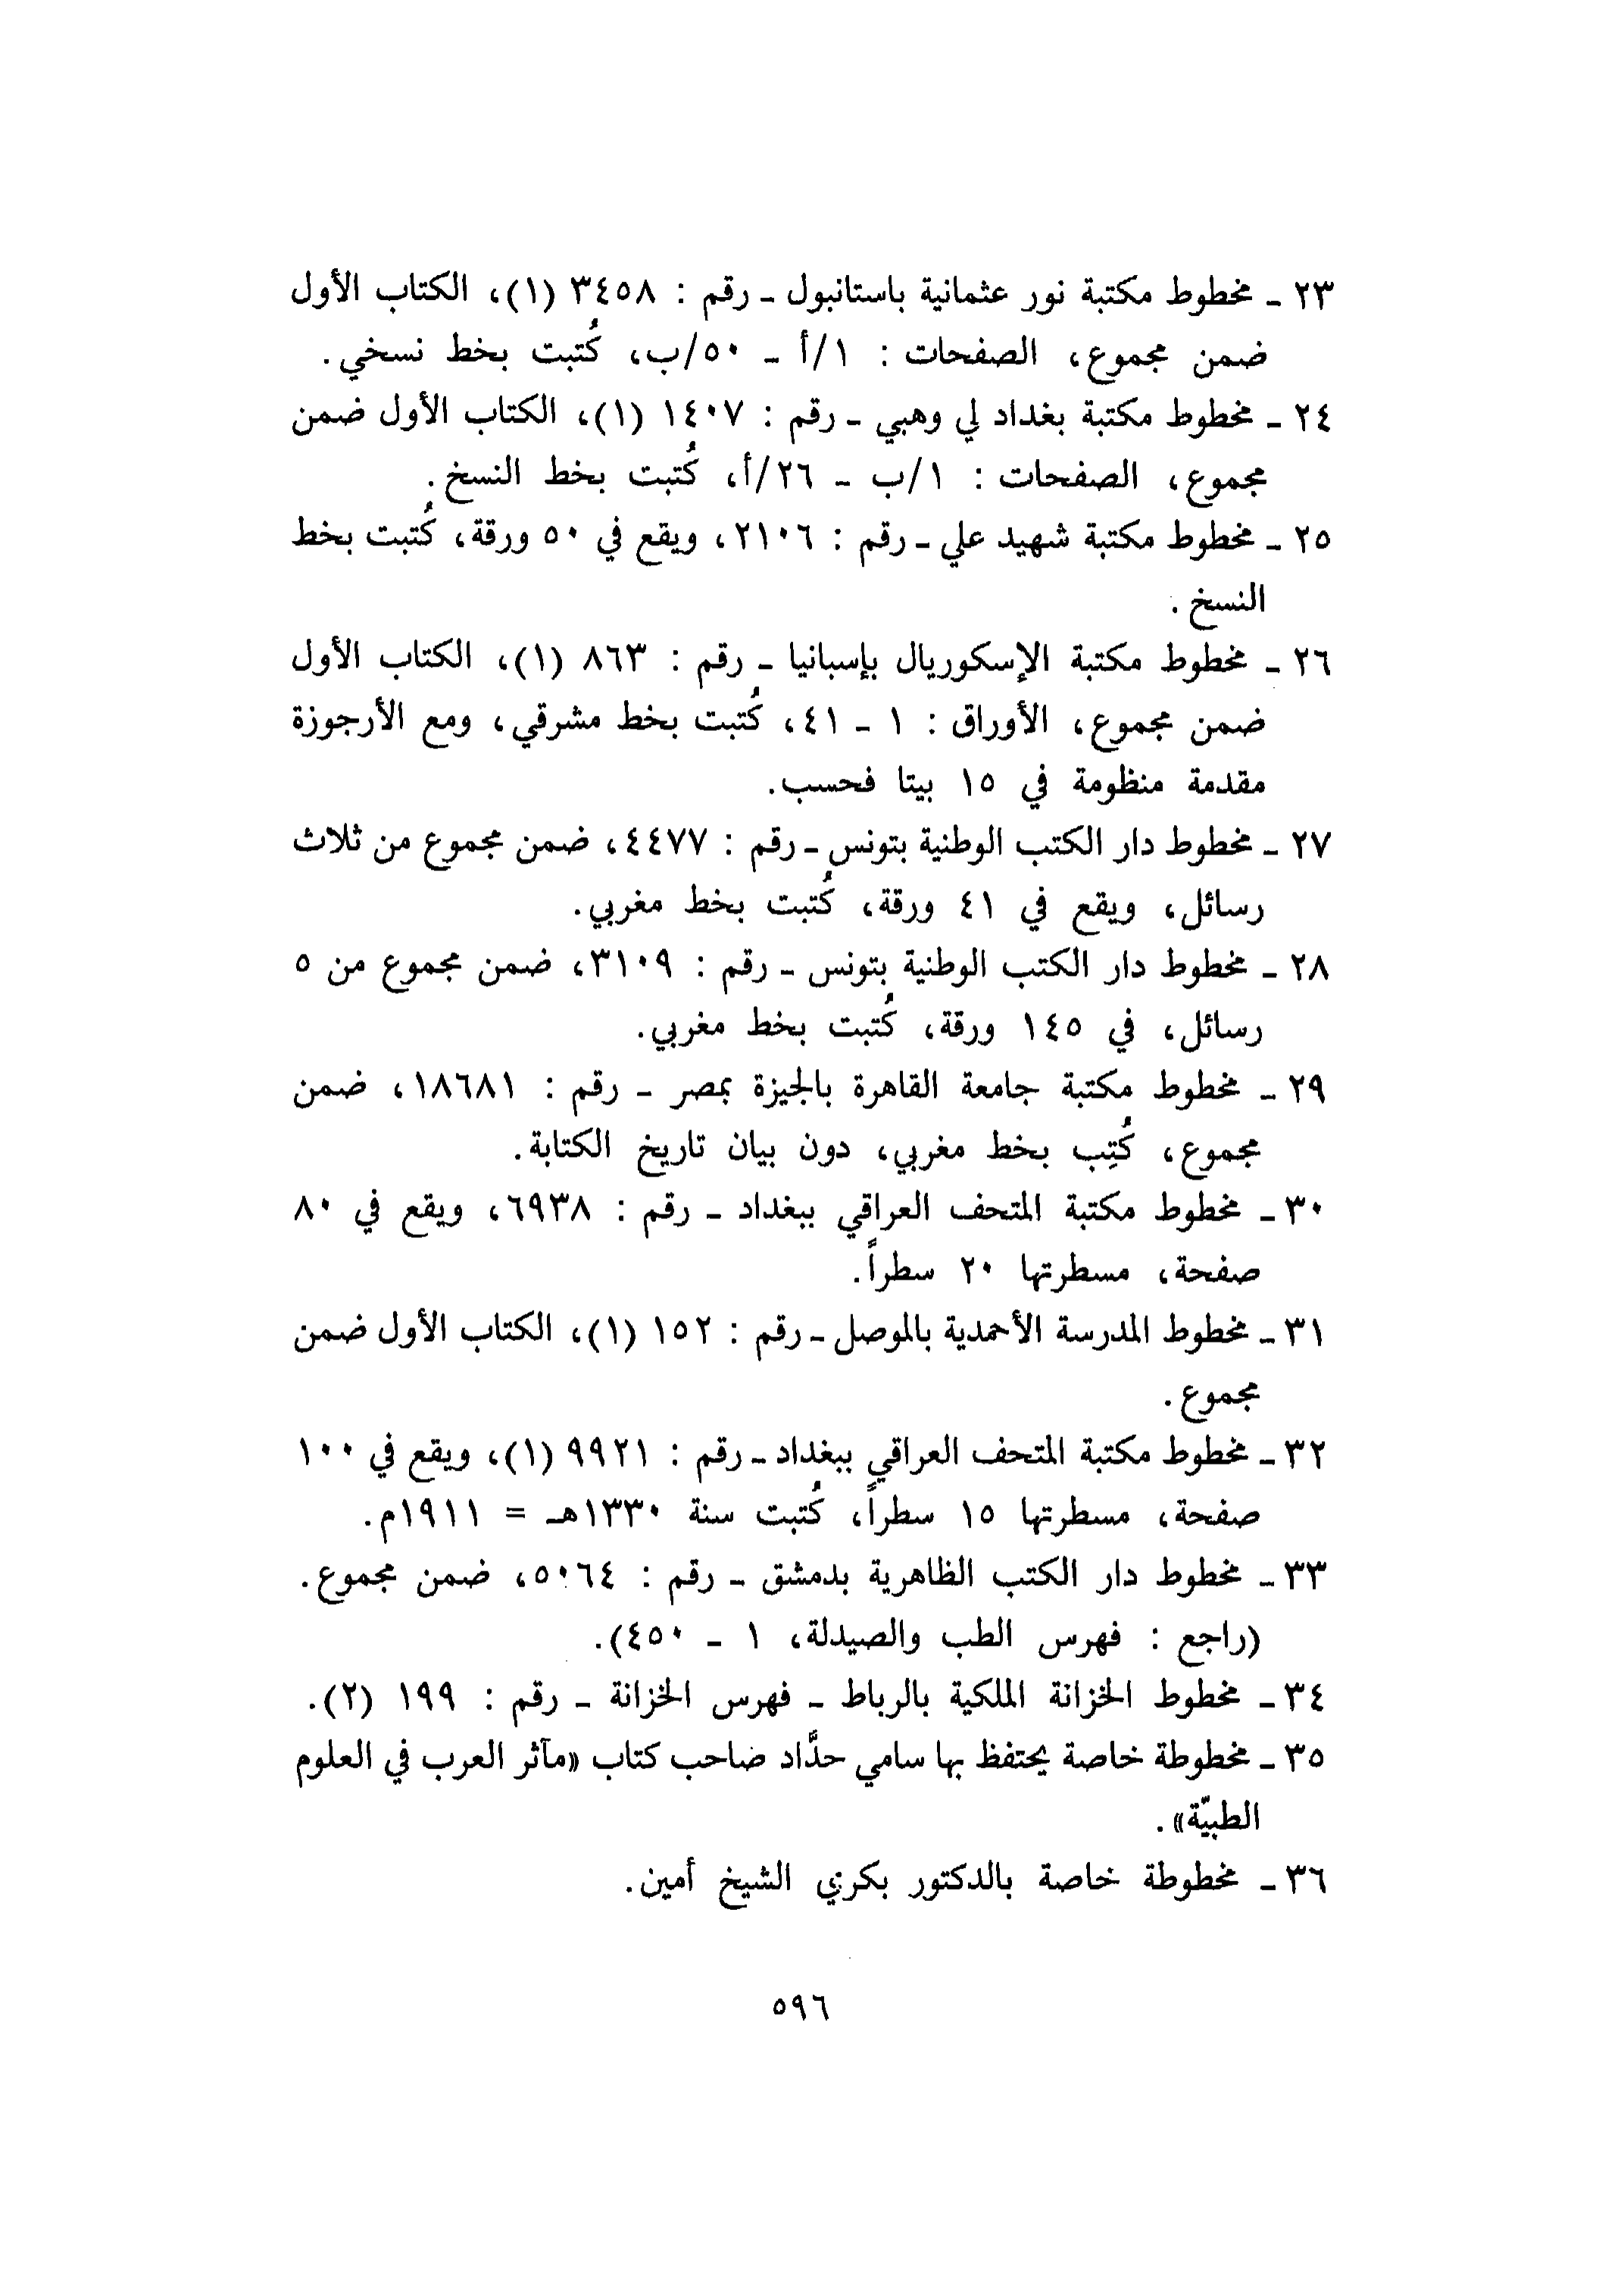 ٢٣ ـ مخطوط مكتبة نور عثمانية باستانبول ـ رقم : ٣٤٥٨ (١)، الكتاب الأول
ضمن مجموع، الصفحات : ١/أ ـ ٥٠/ب، كُتبت بخط نسخي.
٢٤ ـ مخطوط مكتبة بغداد لي وهبي ـ رقم : ١٤٠٧ (١)، الكتاب الأول ضمن
مجموع، الصفحات : ١/ب ـ ٢٦/أ، كُتبت بخط النسخ.
٢٥ ـ مخطوط مكتبة شهيد علي ـ رقم : ٢١٠٦، ويقع في ٥٠ ورقة، كُتبت بخط
النسخ.
٢٦ ـ مخطوط مكتبة الإسكوريال بإسبانيا ـ رقم : ٨٦٣ (١)، الكتاب الأول
ضمن مجموع، الأوراق : ١ ـ ٤١، كُتبت بخط مشرقي، ومع الأرجوزة
مقدمة منظومة في ١٥ بيتا فحسب.
٢٧ ـ مخطوط دار الكتب الوطنية بتونس ـ رقم : ٤٤٧٧، ضمن مجموع من ثلاث
رسائل، ويقع في ٤١ ورقة، كُتبت بخط مغربي.
٢٨ ـ مخطوط دار الكتب الوطنية بتونس ـ رقم : ٣١٠٩، ضمن مجموع من ٥
رسائل، في ١٤٥ ورقة، كُتبت بخط مغربي.
٢٩ ـ مخطوط مكتبة جامعة القاهرة بالجيزة بمصر ـ رقم : ١٨٦٨١، ضمن
مجموع، كُتِب بخط مغربي، دون بيان تاريخ الكتابة.
٣٠ ـ مخطوط مكتبة المتحف العراقي ببغداد ـ رقم : ٦٩٣٨، ويقع في ٨٠
صفحة، مسطرتها ٢٠ سطراً.
٣١ ـ مخطوط المدرسة الأحمدية بالموصل ـ رقم : ١٥٢ (١)، الكتاب الأول ضمن
مجموع.
٣٢ ـ مخطوط مكتبة المتحف العراقي ببغداد ـ رقم : ٩٩٢١ (١)، ويقع في ١٠٠
صفحة، مسطرتها ١٥ سطراً، كُتبت سنة ١٣٣٠هـ = ١٩١١م.
٣٣ ـ مخطوط دار الكتب الظاهرية بدمشق ـ رقم : ٥٠٦٤، ضمن مجموع.
(راجع : فهرس الطب والصيدلة، ١ ـ ٤٥٠).
٣٤ ـ مخطوط الخزانة الملكية بالرباط ـ فهرس الخزانة ـ رقم : ١٩٩ (٢).
٣٥ ـ مخطوطة خاصة يحتفظ بها سامي حدَّاد صاحب كتاب «مآثر العرب في العلوم
الطبيّة».
٣٦ ـ مخطوطة خاصة بالدكتور بكري الشيخ أمين.
٥٩٦